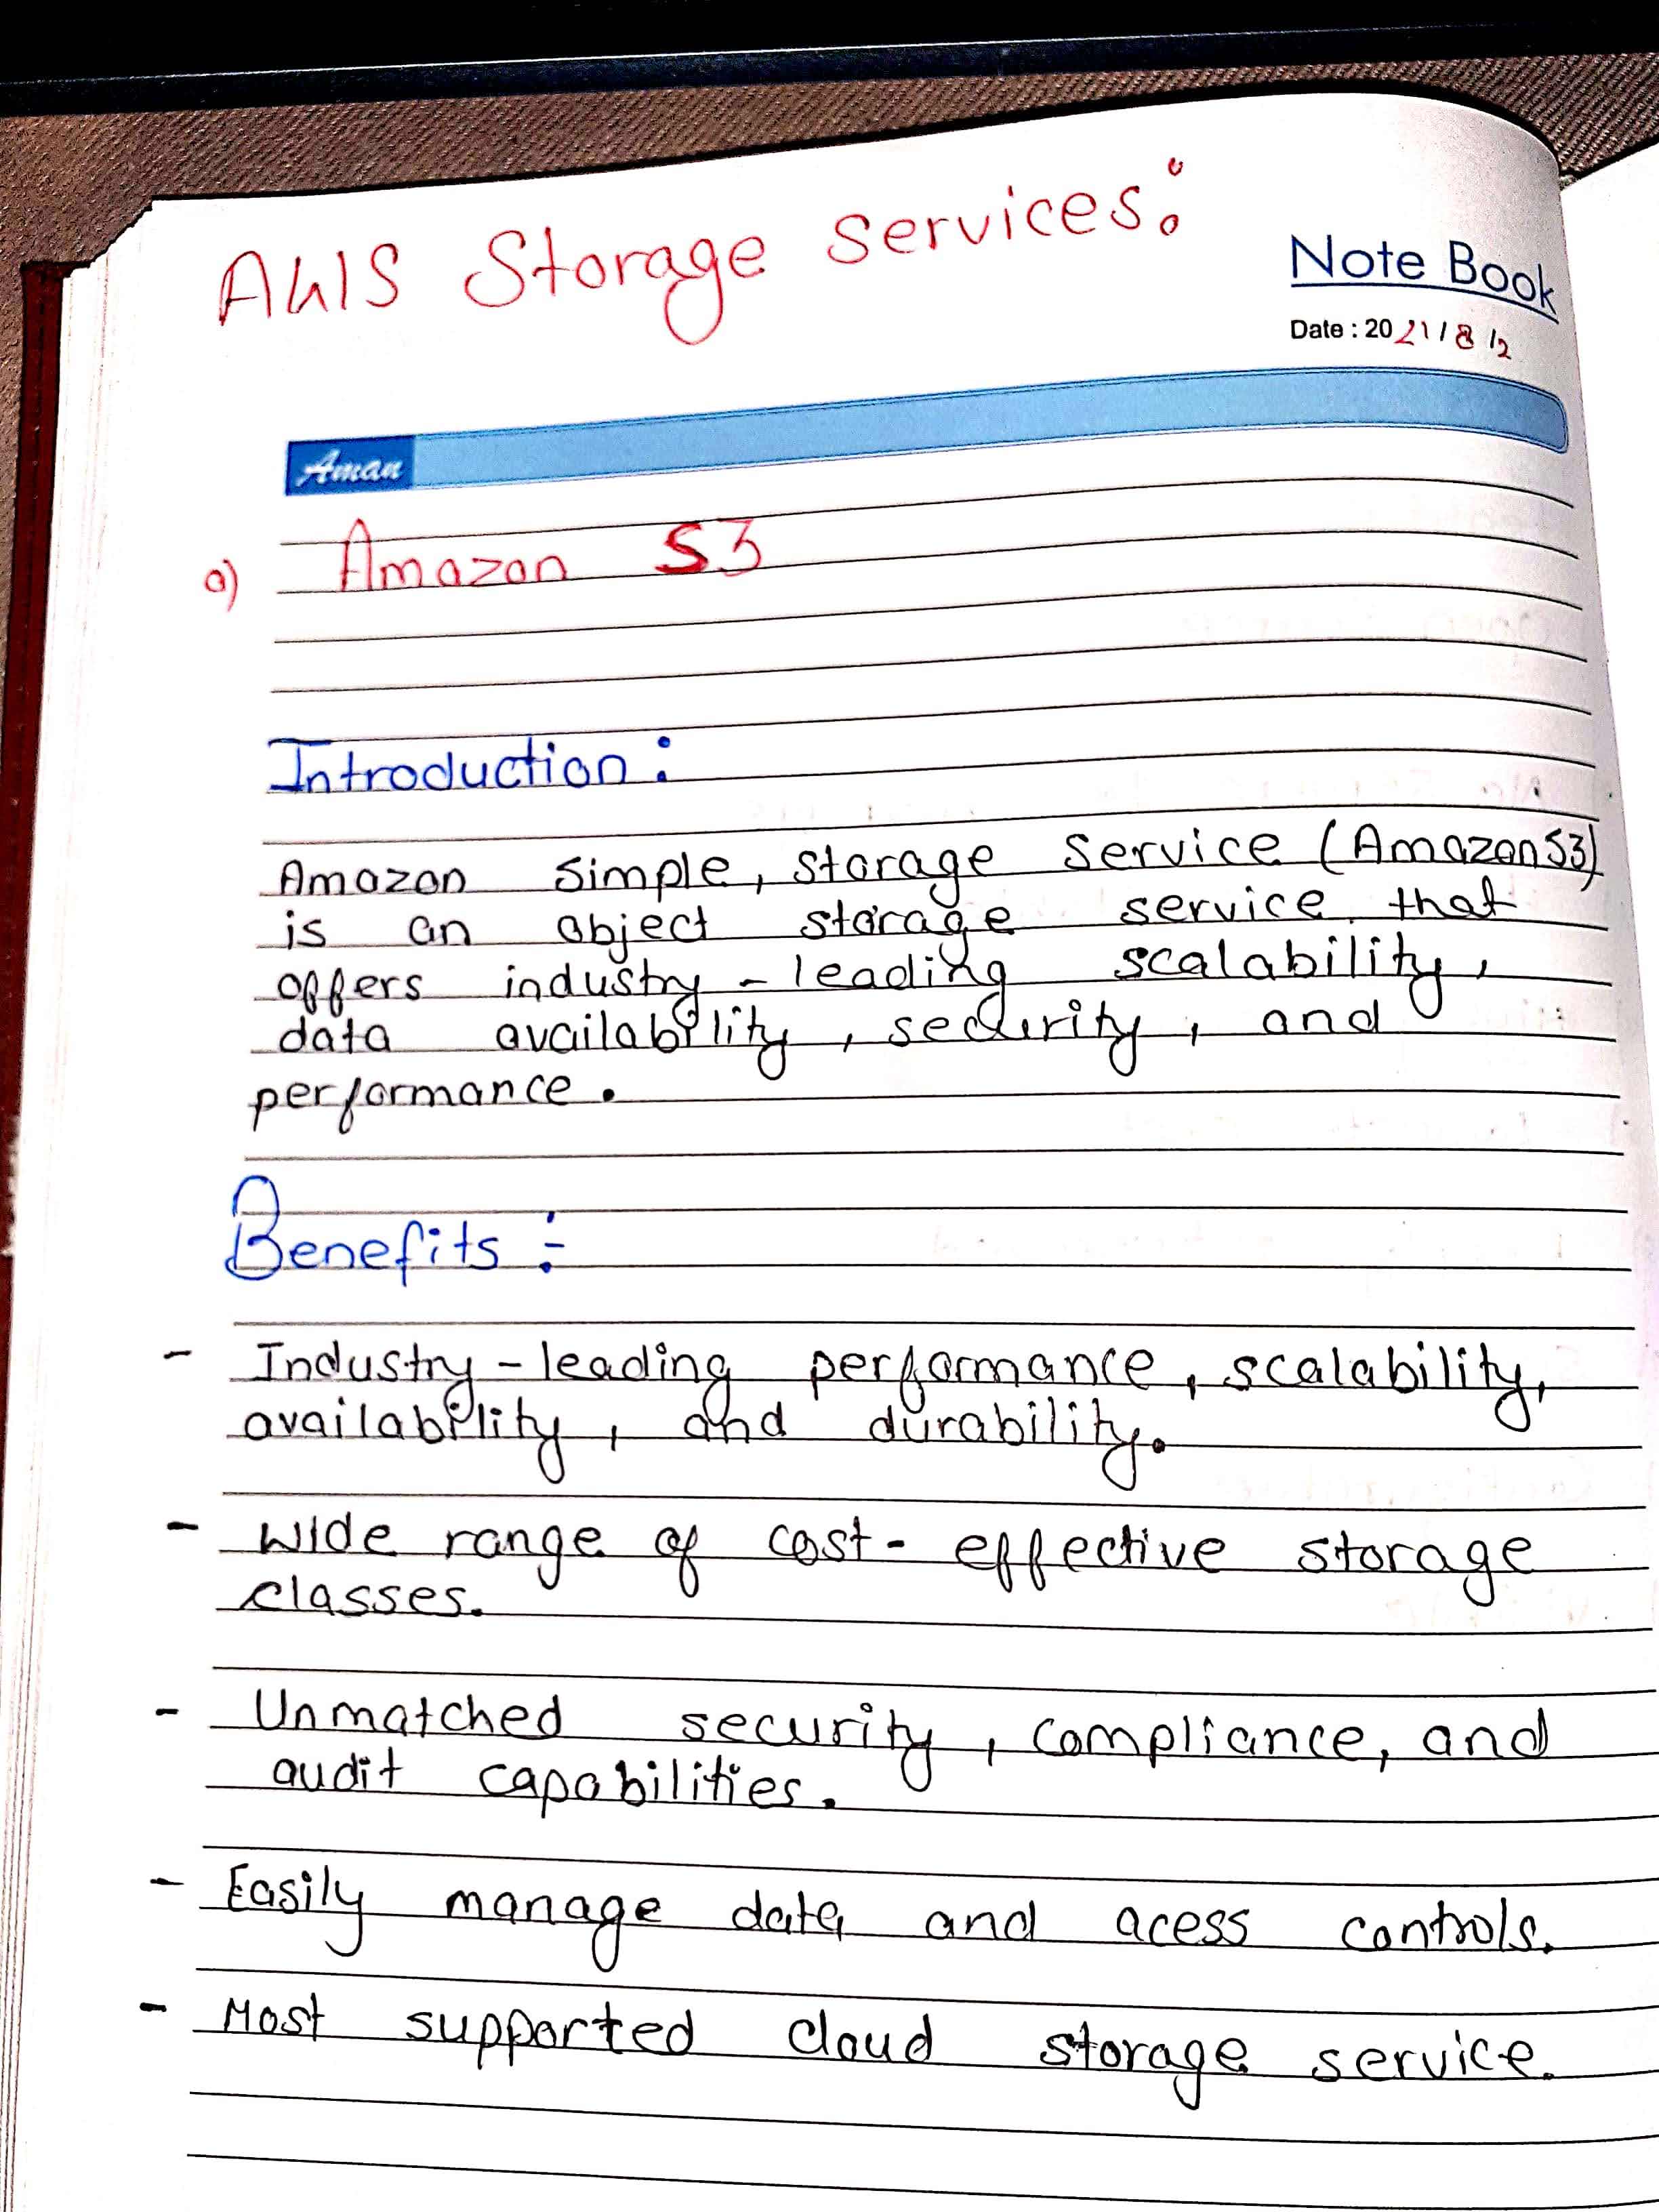 AWS Storage Services:
Note Book
Date : 2021/8/2
Aman
a) Amazon S3
Introduction:
Amazon Simple, storage service (Amazon S3)
is an object storage service that
offers industry-leading scalability,
data availability, security, and
performance.
Benefits:-
- Industry-leading performance, scalability,
availability, and durability.
- Wide range of cost-effective storage
classes.
- Unmatched security, compliance, and
audit capabilities.
- Easily manage data and acess controls.
- Most supported cloud storage service.